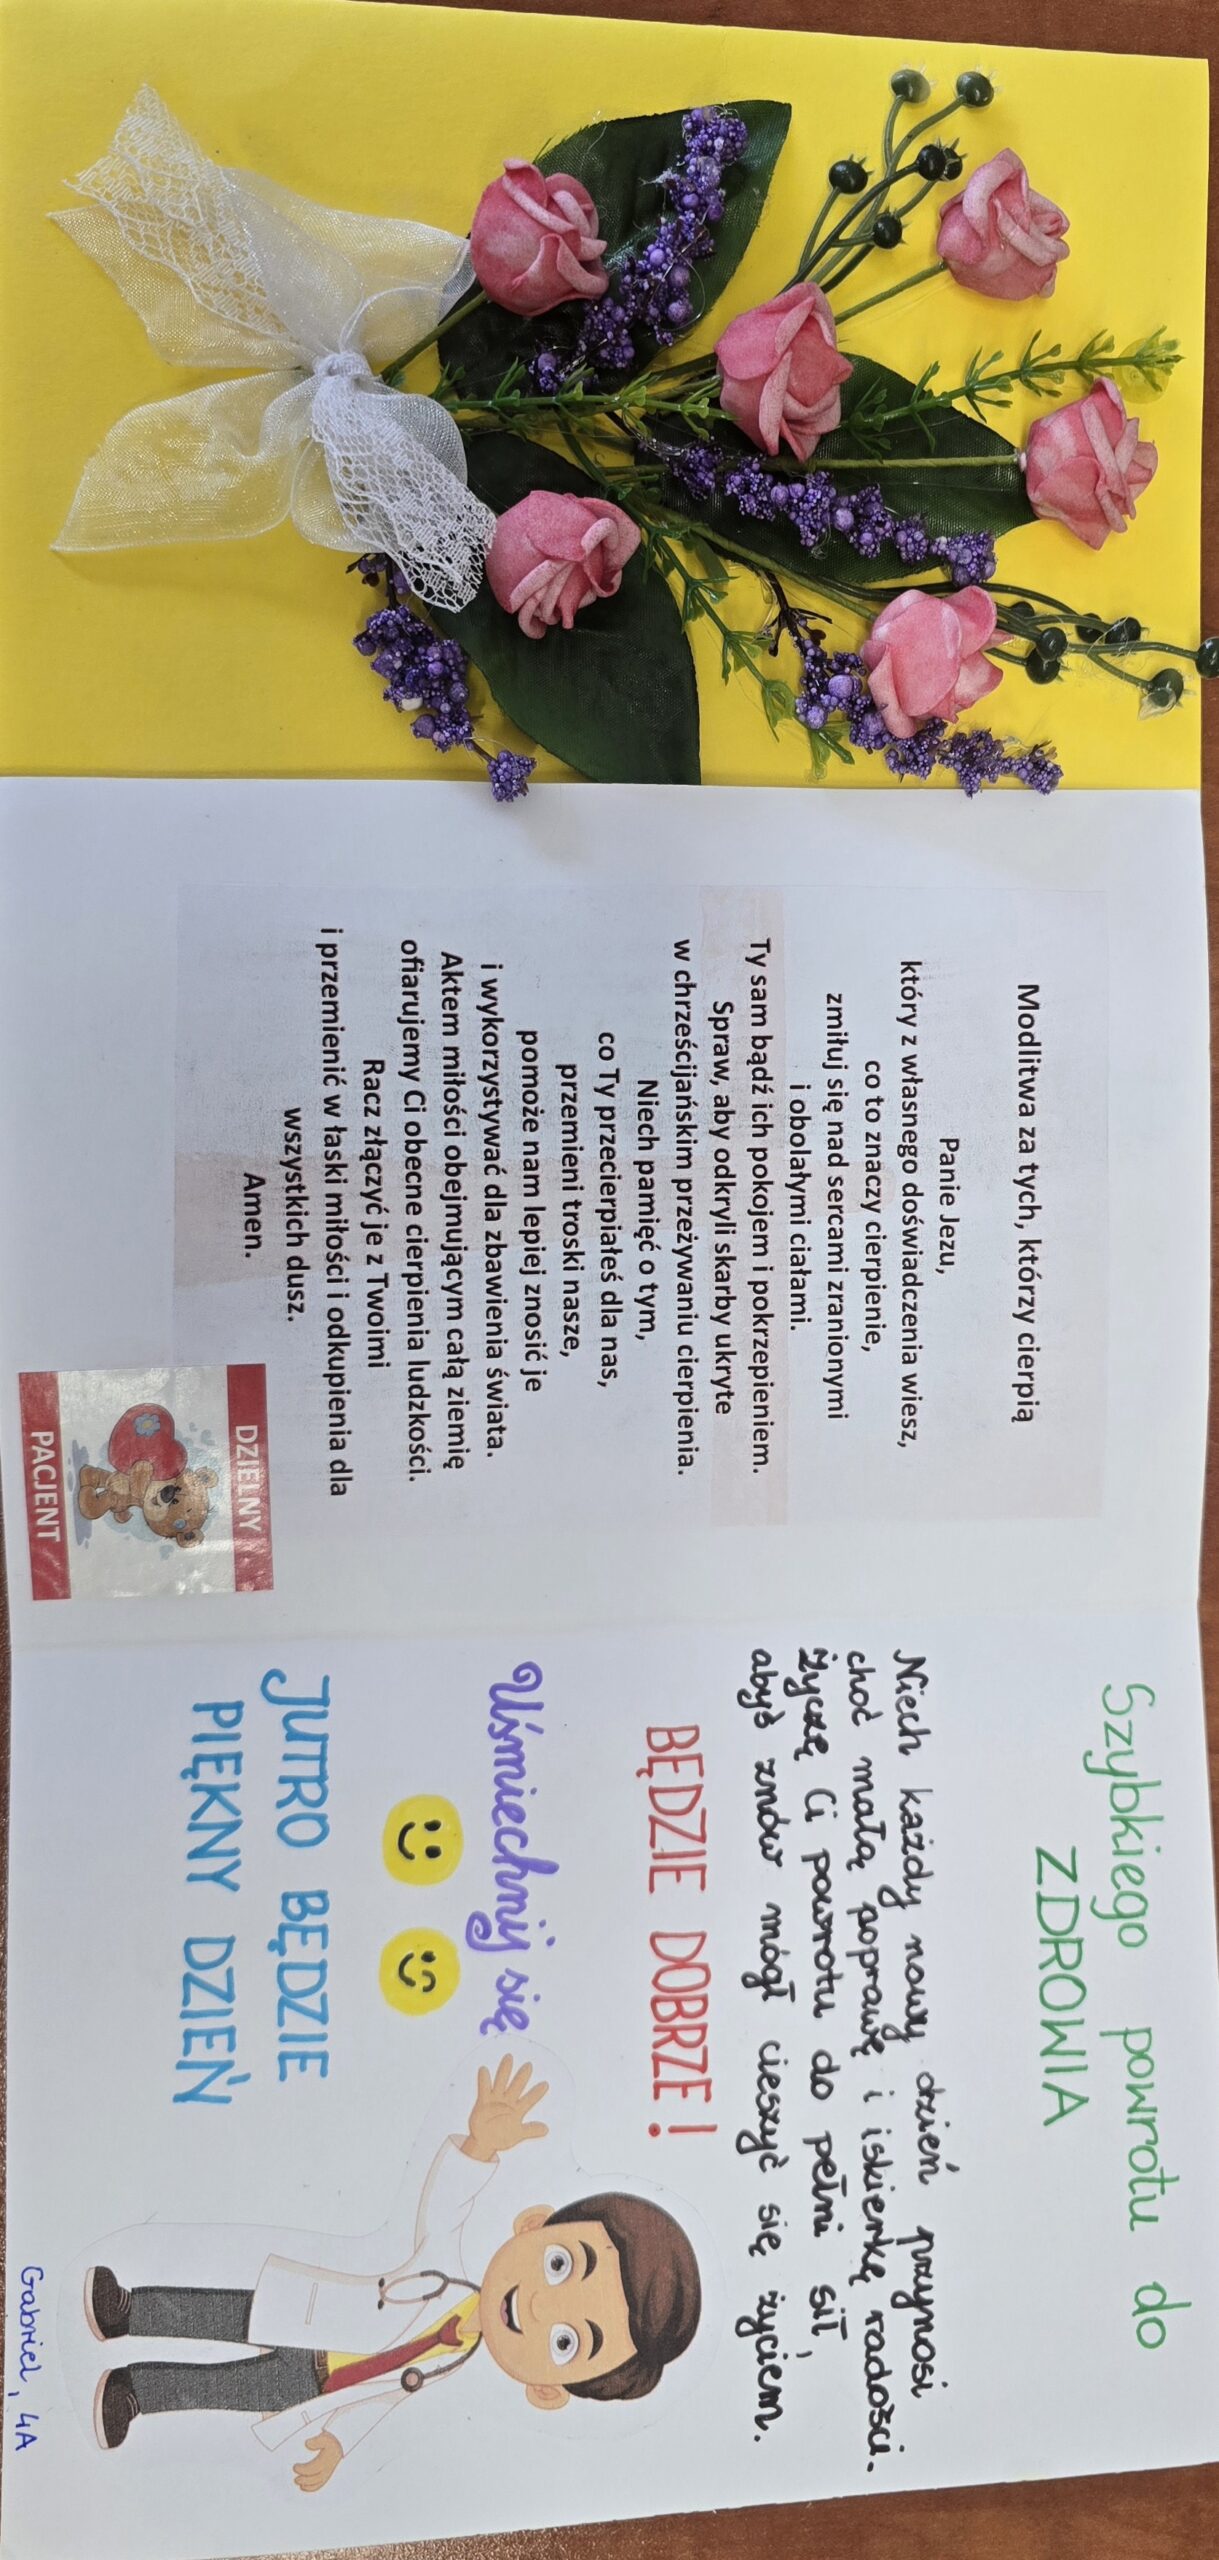 Modlitwa za tych, którzy cierpią
Panie Jezu,
który z własnego doświadczenia wiesz,
co to znaczy cierpienie,
zmiłuj się nad sercami zranionymi
i obolałymi ciałami.
Ty sam bądź ich pokojem i pokrzepieniem.
Spraw, aby odkryli skarby ukryte
w chrześcijańskim przeżywaniu cierpienia.
Niech pamięć o tym,
co Ty przecierpiałeś dla nas,
przemieni troski nasze,
pomoże nam lepiej znosić je
i wykorzystywać dla zbawienia świata.
Aktem miłości obejmującym całą ziemię
ofiarujemy Ci obecne cierpienia ludzkości.
Racz złączyć je z Twoimi
i przemienić w łaski miłości i odkupienia dla
wszystkich dusz.
Amen.
DZIELNY
PACJENT
Szybkiego powrotu do
ZDROWIA
Niech każdy nowy dzień przynosi
choć małą poprawę i iskierkę radości.
Życzę Ci powrotu do pełni sił,
abyś znów mógł cieszyć się życiem.
BĘDZIE DOBRZE!
Uśmiechnij się
JUTRO BĘDZIE
PIĘKNY DZIEŃ
Gabriel, 4A